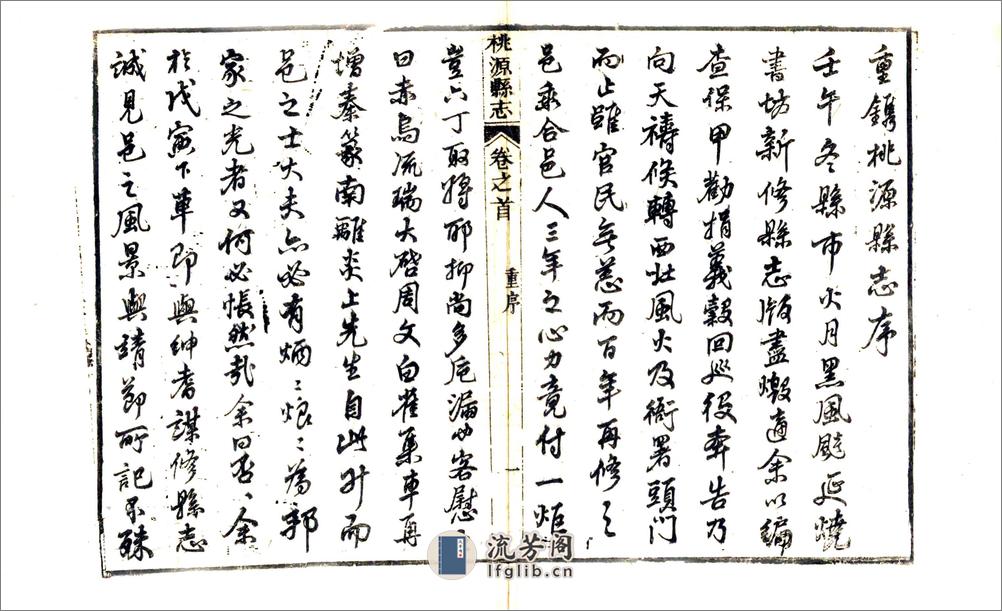 重鐫桃源縣志序
壬午冬縣市火月黑風颷延燒
書坊新修縣志版盡燬適余以編
查保甲勸捐義穀回巡役奔告乃
向天禱候轉西北風火及衙署頭門
而止雖官民無恙而百年再修之
邑乘合邑人三年之心力竟付一炬
桃源縣志
卷之首
重序
一
豈六丁取將耶抑尚多卮漏也客慰之
曰赤烏流瑞大啓周文白雀集車再
增秦篆南離炎上先生自此升而
邑之士大夫亦必有炳炳烺烺為邦
家之光者又何必悵然哉余曰否否余
於戊寅下車即與紳耆謀修縣志
誠見邑之風景與靖節所記不殊
流芳阁
lfglib.cn